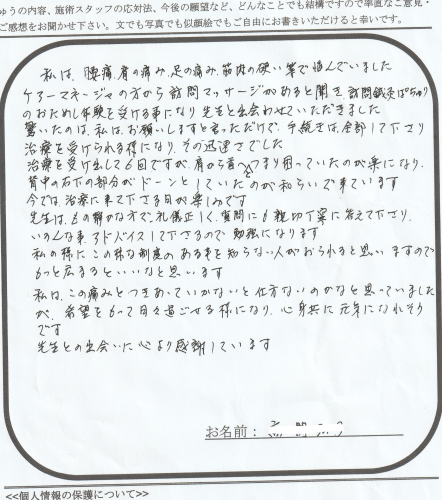 ゅうの内容、施術スタッフの応対法、今後の願望など、どんなことでも結構ですので率直なご意見・
ご感想をお聞かせ下さい。文でも写真でも似顔絵でもご自由にお書きいただけると幸いです。
私は、腰痛、肩の痛み、足の痛み、筋肉の硬い等で悩んでいました
ケアーマネージャの方から訪問マッサージがあると聞き、訪問鍼灸ぱちゅり
のおためし体験を受ける事になり先生と出会わせていただきました
驚いたのは、私は、お願いしますと言っただけで、手続きは、全部して下さり
治療を受けられる様になり、その迅速さでした
治療を受け出して6回ですが、肩から首へつまり困っていたのが楽になり、
背中の右下の部分がドーンとしていたのが和らいで来ています
今では、治療に来て下さる日が楽しみです
先生は、もの静かな方で、礼儀正しく、質問にも親切丁寧に答えて下さり、
いろんな事、アドバイスして下さるので勉強になります
私の様にこの様な制度のある事を知らない人がおられると思いますので
もっと広まるといいなと思います
私は、この痛みとつきあっていかないと仕方ないのかなと思っていました
が、希望をもって日々過ごせる様になり、心身共に元気になれそう
です
先生との出会いに心より感謝しています
お名前：
<<個人情報の保護について>>